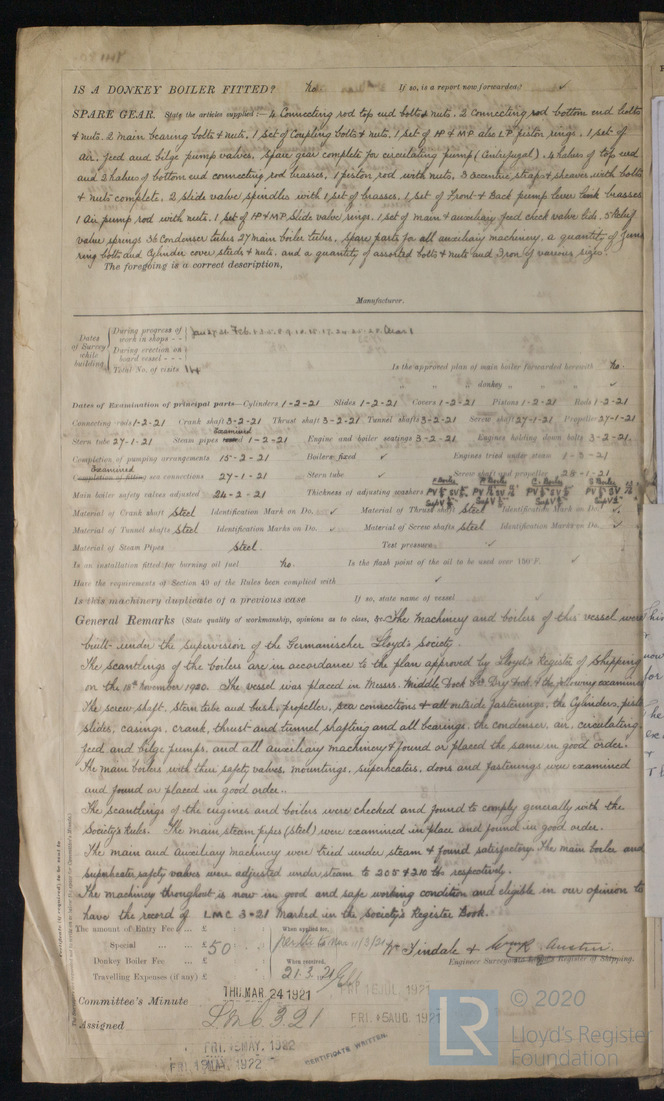 IS A DONKEY BOILER FITTED? No. If so, is a report now forwarded? ✓
SPARE GEAR. State the articles supplied:— 4 Connecting rod top end bolts & nuts, 2 Connecting rod bottom end bolts
& nuts, 2 main bearing bolts & nuts, 1 set of Coupling bolts & nuts, 1 set of HP & MP also LP piston rings, 1 set of
air, feed and bilge pump valves, Spare gear complete for circulating pump (Centrifugal), 4 halves of top end
and 2 halves of bottom end connecting rod brasses, 1 piston rod with nuts, 3 Eccentric straps & sheaves with bolts
& nuts complete, 2 slide valve spindles with 1 set of brasses, 1 set of Front & Back pump lever brasses
1 Air pump rod with nuts, 1 set of HP & MP Slide valve rings, 1 set of main & auxiliary feed check valve lids, 5 Relief
valve springs 36 Condenser tubes 27 Main boiler tubes, Spare parts for all auxiliary machinery, a quantity of Junk
ring bolts and Cylinder cover studs & nuts, and a quantity of assorted bolts & nuts and Iron of various sizes.
The foregoing is a correct description,
Manufacturer.
Dates of Survey while building
During progress of work in shops - - Jan 27. 31. Feb. 1. 2.
During erection on board vessel - - -
Total No. of visits 14
Is the approved plan of main boiler forwarded herewith No.
" " " donkey " " " ✓
Dates of Examination of principal parts—Cylinders 1-2-21 Slides 1-2-21 Covers 1-2-21 Pistons 1-2-21 Rods 1-2-21
Connecting rods 1-2-21 Crank shaft 3-2-21 Thrust shaft 3-2-21 Tunnel shafts 3-2-21 Screw shaft 27-1-21 Propeller 27-1-21
Stern tube 27-1-21 Steam pipes Examined 1-2-21 Engine and boiler seatings 3-2-21 Engines holding down bolts 3-2-21.
Completion of pumping arrangements 15-2-21 Boilers fixed ✓ Engines tried under steam 1-3-21
Examined
Completion of fitting sea connections 27-1-21 Stern tube ✓ Screw shaft and propeller 28-1-21
Main boiler safety valves adjusted 24-2-21 Thickness of adjusting washers
Material of Crank shaft Steel Identification Mark on Do. ✓ Material of Thrust shaft Steel Identification Mark on Do. ✓
Material of Tunnel shafts Steel Identification Marks on Do. ✓ Material of Screw shafts Steel Identification Marks on Do. ✓
Material of Steam Pipes Steel. Test pressure ✓
Is an installation fitted for burning oil fuel No. Is the flash point of the oil to be used over 150°F. ✓
Have the requirements of Section 49 of the Rules been complied with ✓
Is this machinery duplicate of a previous case If so, state name of vessel ✓
General Remarks (State quality of workmanship, opinions as to class, &c. The Machinery and boilers of this vessel were
built under the supervision of the Germanischer Lloyd's Society.
The scantlings of the boilers are in accordance to the plan approved by Lloyd's Register of Shipping
on the 18th November 1920. The vessel was placed in Messrs. Middle Dock Dry Dock & the following examined
The screw shaft, stern tube and bush, propeller, sea connections & all outside fastenings, the Cylinders, pistons
slides, casings, crank, thrust and tunnel shafting and all bearings, the condenser, air, circulating,
feed and bilge pumps, and all auxiliary machinery & found or placed the same in good order.
The main boilers with their safety valves, mountings, superheaters, doors and fastenings were examined
and found or placed in good order.
The scantlings of the engines and boilers were checked and found to comply generally with the
Society's Rules. The main steam pipes (steel) were examined in place and found in good order.
The main and auxiliary machinery were tried under steam & found satisfactory. The main boiler and
superheater safety valves were adjusted under steam to 205 & 210 lbs respectively.
The machinery throughout is now in good and safe working condition and eligible in our opinion to
have the record of LMC 3-21 Marked in the Society's Register Book.
The amount of Entry Fee ... £ When applied for,
Special ... £ 50 11/3/21 Wm Tindale & Wm R. Austin.
Donkey Boiler Fee ... £ When received, Engineer Surveyors to Lloyd's Register of Shipping.
Travelling Expenses (if any) £ 21.3.21
Committee's Minute THU. MAR 24 1921 FRI 15 JUL 1921
Assigned LMC 3.21 FRI. 5 AUG. 1921
FRI. 5 MAY. 1922
FRI. 19 MAY. 1922
CERTIFICATE WRITTEN.
LR © 2020
Lloyd's Register
Foundation